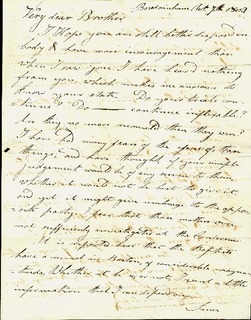 Bowdoinham Oct 7th 1843
Very dear Brother
I Hope you are still better disposed in
body & have more encouragement than
when I saw you. I have heard nothing
from you which makes me anxious to
know your state. Do your trials con
tinue? Do continue inflexible?
Are they no more reconciled than they were?
I have had many fears of these
things, and have thought if your
judgement would be of any service to them
whether it would not be best to give it
and yet it might give umbrage to the oppo
site party. I fear that these matters were
not sufficiently investigated at the Conference
It is reported here that the Baptists
have a revival in Boston of considerable magni
tude. Whether it be so or not I want a little
information that I can depend on.
Since